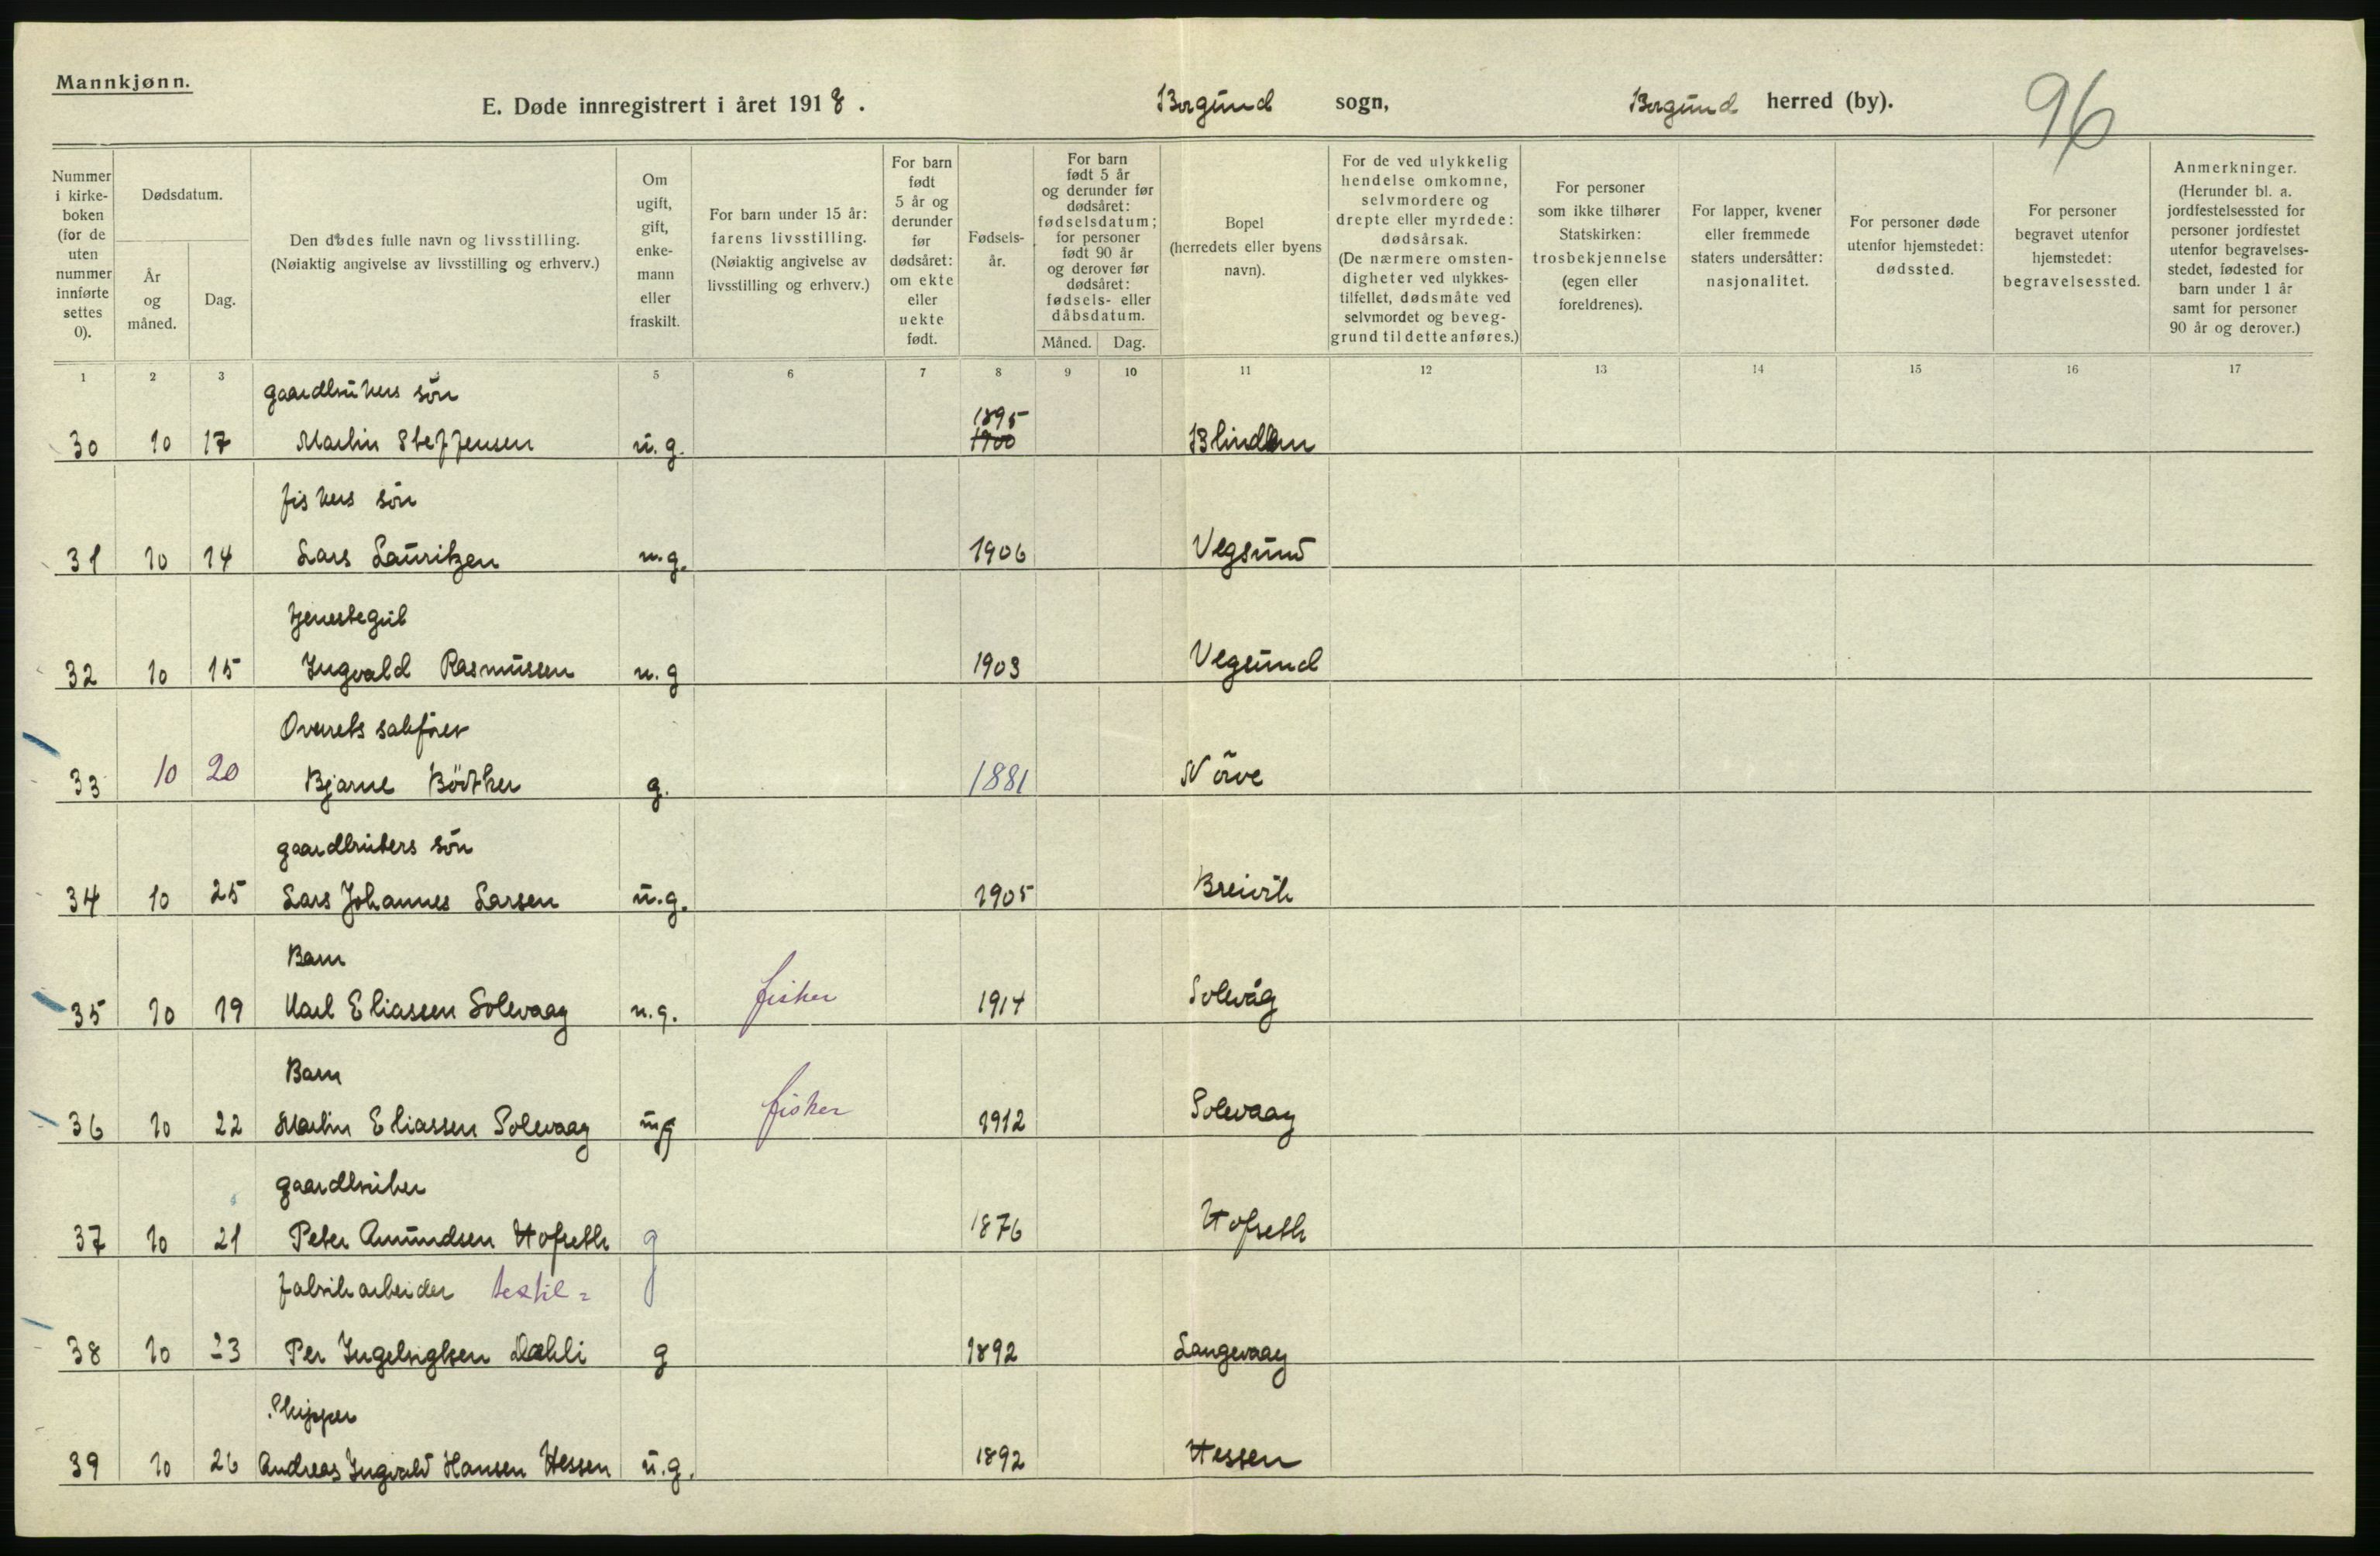 Mannkjønn.
E. Døde innregistrert i året 1918. Borgund sogn, Borgund herred (by). 96
Nummer i kirkeboken (for de uten nummer innførte settes 0).
Dødsdatum.
År og måned.
Dag.
Den dødes fulle navn og livsstilling.
(Nøiaktig angivelse av livsstilling og erhverv.)
Om ugift, gift, enkemann eller fraskilt.
For barn under 15 år: farens livsstilling.
(Nøiaktig angivelse av livsstilling og erhverv.)
For barn født 5 år og derunder før dødsåret: om ekte eller uekte født.
Fødselsår.
For barn født 5 år og derunder før dødsåret: fødselsdatum; for personer født 90 år og derover før dødsåret: fødsels- eller dåbsdatum.
Måned. Dag.
Bopel (herredets eller byens navn).
For de ved ulykkelig hendelse omkomne, selvmordere og drepte eller myrdede: dødsårsak.
(De nærmere omstendigheter ved ulykkestilfellet, dødsmåte ved selvmordet og beveggrund til dette anføres.)
For personer som ikke tilhører Statskirken: trosbekjennelse (egen eller foreldrenes).
For lapper, kvener eller fremmede staters undersåtter: nasjonalitet.
For personer døde utenfor hjemstedet: dødssted.
For personer begravet utenfor hjemstedet: begravelsessted.
Anmerkninger.
(Herunder bl. a. jordfestelsessted for personer jordfestet utenfor begravelsesstedet, fødested for barn under 1 år samt for personer 90 år og derover.)
1 2 3 5 6 7 8 9 10 11 12 13 14 15 16 17
gaardbrukers sön
1895
30 10 17 Martin Steffensen u.g. 1900 Blindem
fiskers sön
31 10 14 Lars Lauritzen u.g. 1906 Vegsund
tjenestegut
32 10 15 Ingvald Rasmussen u.g 1903 Vegsund
Overrets sakförer
33 10 20 Bjarne Bödtker g. 1881 Nörve
gaardbrukers sön
34 10 25 Lars Johannes Larsen u.g. 1905 Breivik
Barn
35 10 19 Karl Eliassen Solevaag u.g. fisker 1914 Solevåg
Barn
36 10 22 Martin Eliassen Solevaag ug fisker 1912 Solevaag
gaardbruker
37 10 21 Peter Amundsen Hofseth g 1876 Hofseth
fabrikarbeider textil=
38 10 23 Per Ingebrigtsen Dahli g 1892 Langevaag
Skipper
39 10 26 Andreas Ingvald Hansen Hessen u.g. 1892 Hessen